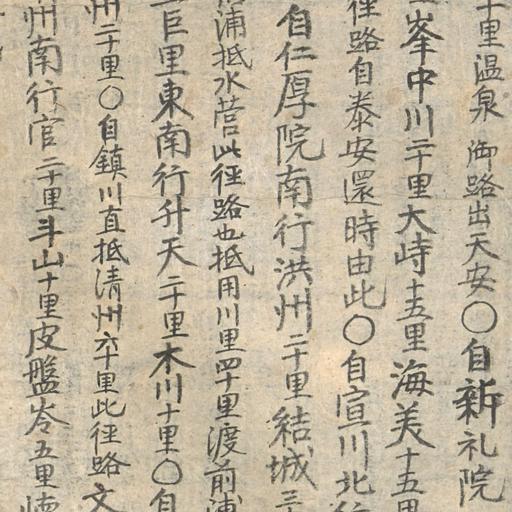 十里温泉 御路出天安○自新礼院
峯中川二十里大峙十五里海美十五里
徑路自泰安還時由此○自宣川北行
自仁厚院南行洪州二十里結城三
浦抵水营此徑路也抵用川里四十里渡前浦
巨里東南行升天二十里木川十里○自
州二十里○自鎮川直抵清州六十里此徑路文
州南行官二十里斗山十里皮盤岺五里懷